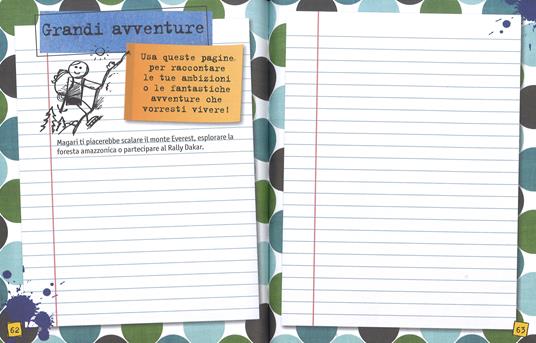 Grandi avventure
Usa queste pagine
per raccontare
le tue ambizioni
o le fantastiche
avventure che
vorresti vivere!
Magari ti piacerebbe scalare il monte Everest, esplorare la
foresta amazzonica o partecipare al Rally Dakar.
62
63